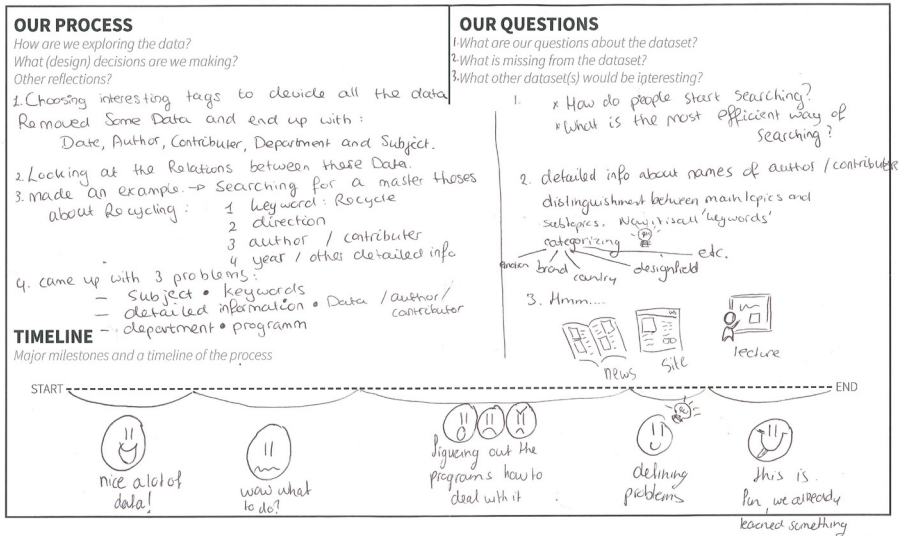 OUR PROCESS
How are we exploring the data?
What (design) decisions are we making?
Other reflections?
1. Choosing interesting tags to devide all the data
Removed Some Data and end up with :
Date, Author, Contributer, Department and Subject.
2. Looking at the Relations between these Data.
3. made an example. → Searching for a master theses
about Recycling :
1 keyword : Recycle
2 direction
3 author / contributer
4 year / other detailed info
4. came up with 3 problems :
- subject • keywords
- detailed information • Data / author /
contributor
- department • programm
OUR QUESTIONS
1. What are our questions about the dataset?
2. What is missing from the dataset?
3. What other dataset(s) would be interesting?
1. * How do people start searching?
* What is the most efficient way of
searching ?
2. detailed info about names of author / contributer
distinguishment between main topics and
subtopics. Now it is all 'keywords'
categorizing
brand
country
designfield
etc.
3. Hmm....
news
site
lecture
TIMELINE
Major milestones and a timeline of the process
START
END
nice a lot of
data!
wow what
to do?
figueing out the
programs how to
deal with it
defining
problems
this is
fun, we already
learned something